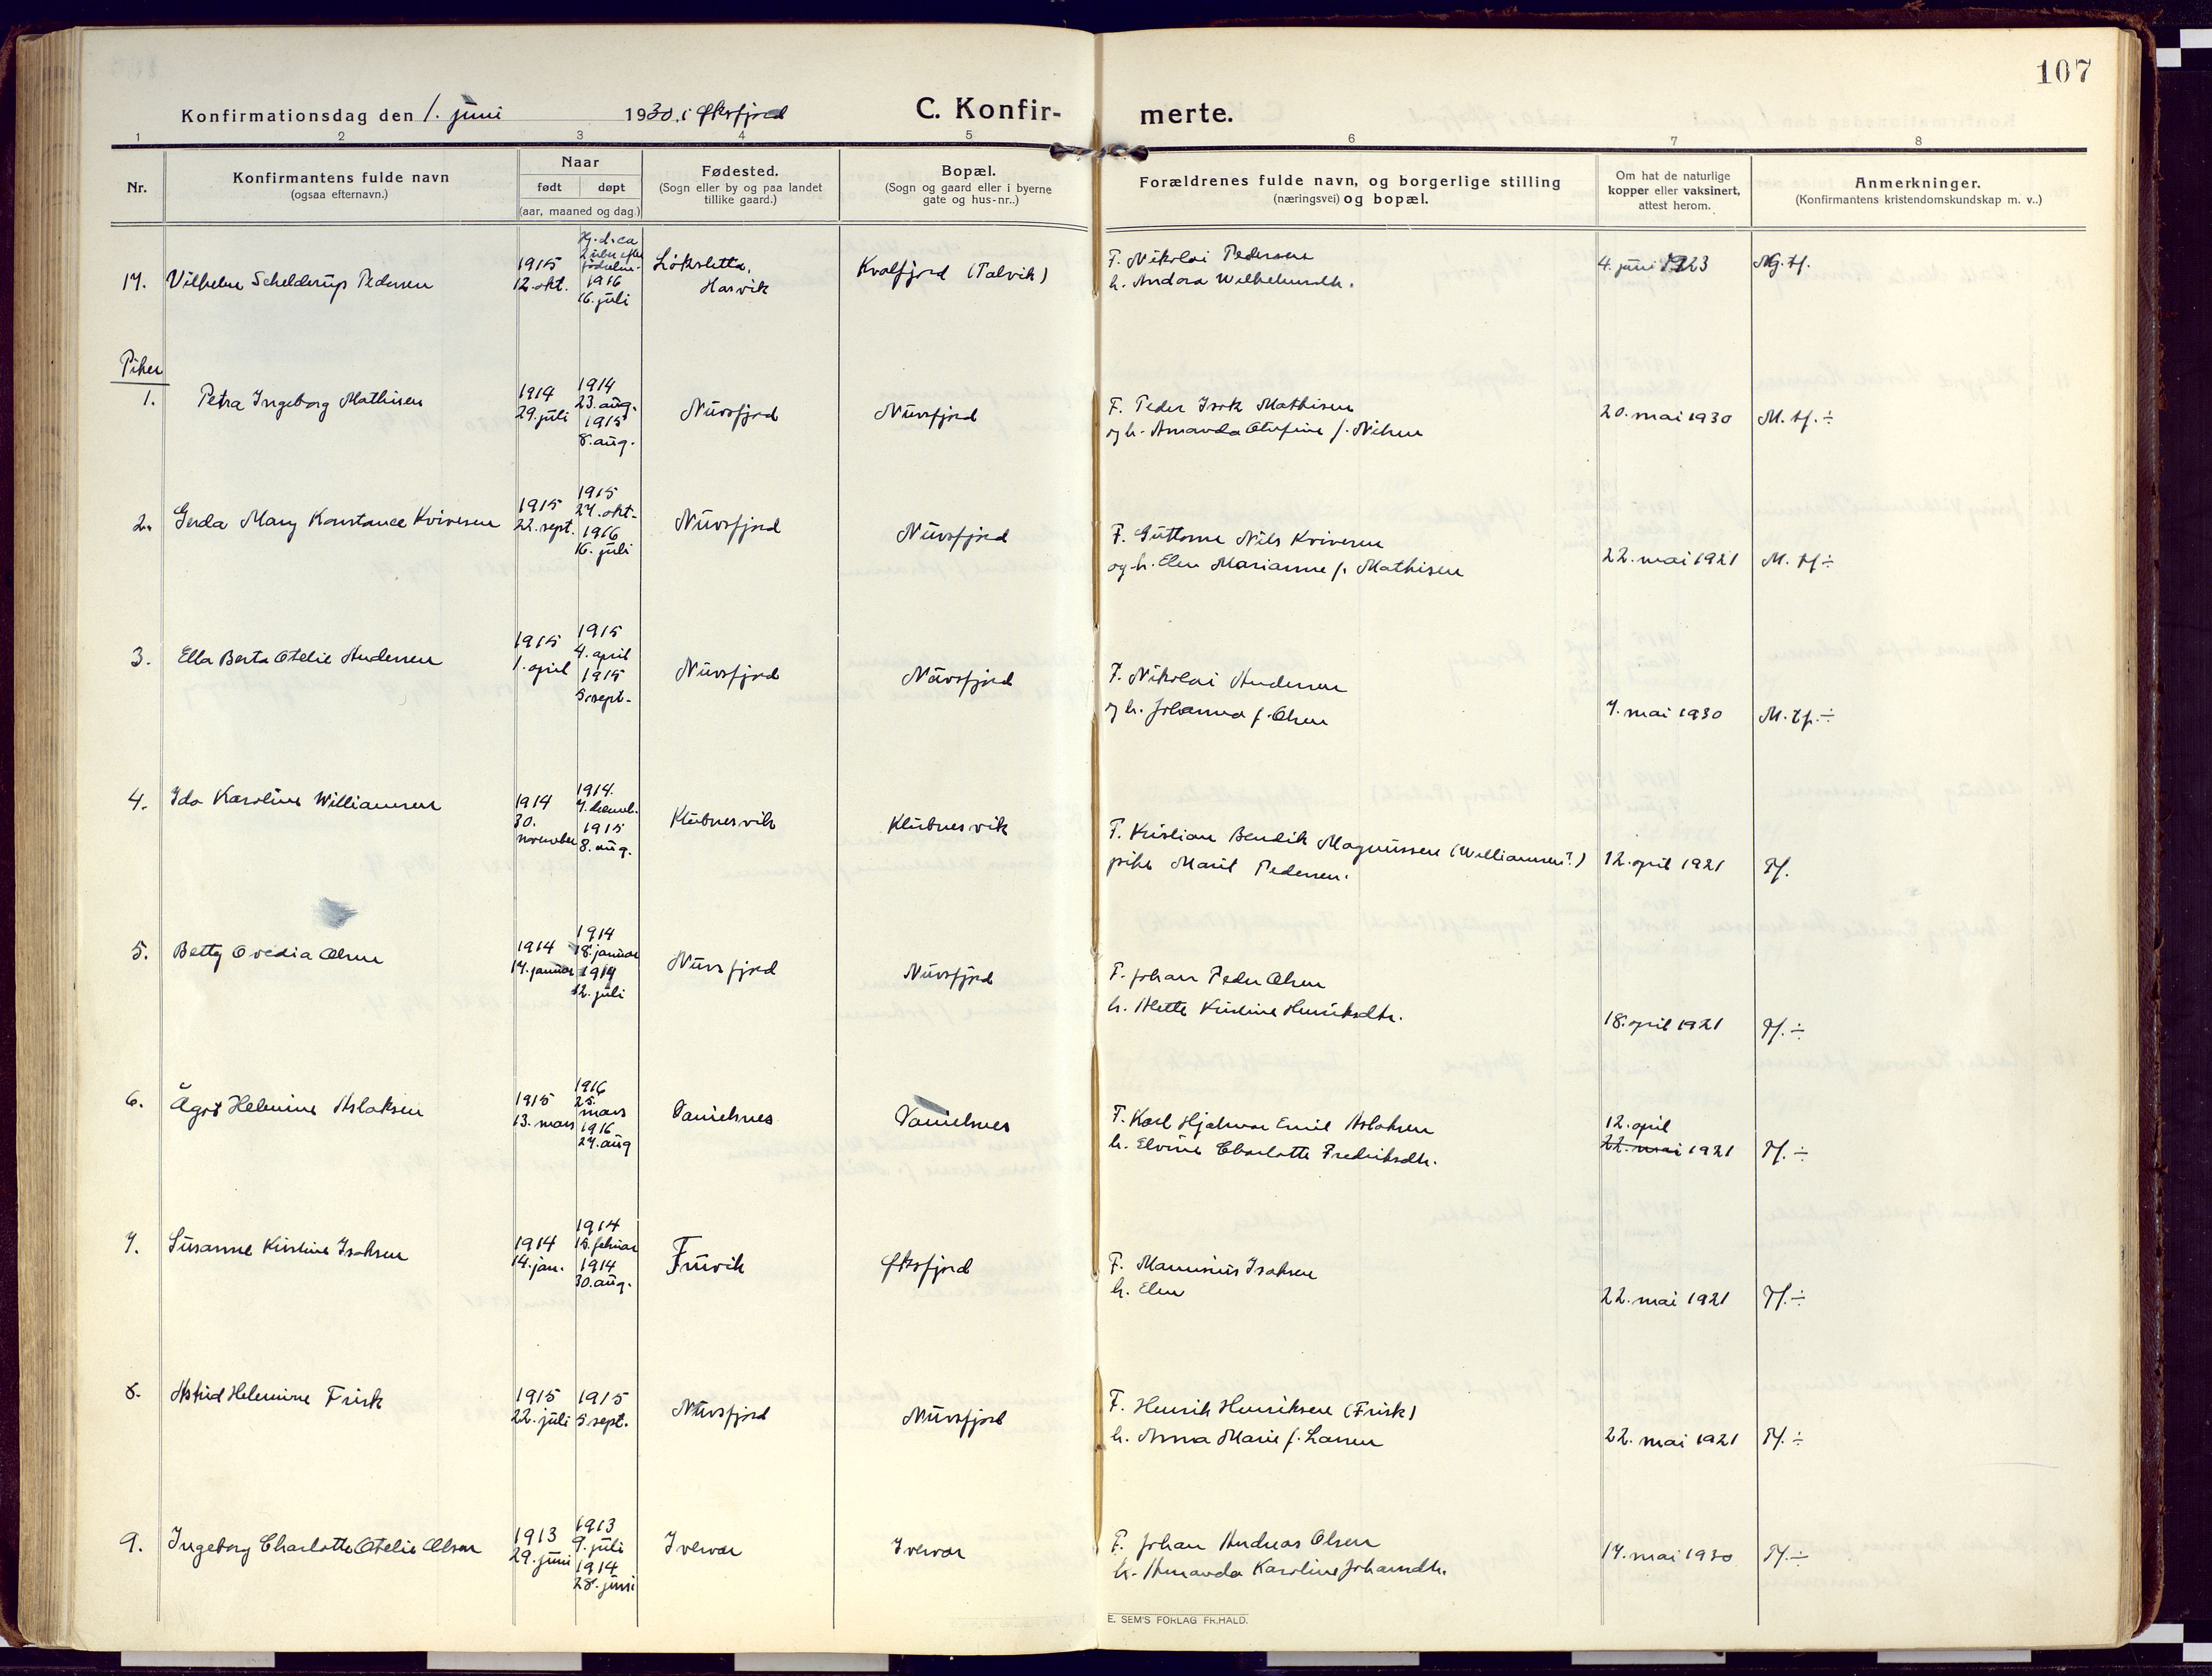 107
Konfirmationsdag den 1. juni 1930 i Øksfjord
C. Konfir- merte.
1 2 3 4 5 6 7 8
Nr.
Konfirmantens fulde navn
(ogsaa efternavn.)
Naar
født døpt
(aar, maaned og dag.)
Fødested.
(Sogn eller by og paa landet
tillike gaard.)
Bopæl.
(Sogn og gaard eller i byerne
gate og hus-nr..)
Forældrenes fulde navn, og borgerlige stilling
(næringsvei) og bopæl.
Om hat de naturlige
kopper eller vaksinert,
attest herom.
Anmerkninger.
(Konfirmantens kristendomskundskap m. v..)
17. Vilhelm Schelderup Pedersen
1915
12. okt.
Hj. d. ca
1916
16. juli
Hasvik
Kvalfjord (Talvik)
F. Nikolai Pedersen
h. Andora Wilhelmsdtr.
4. juni 1923
Mg. tf.
Piker
1. Petra Ingeborg Mathisen
1914
29. juli
1914
23. aug.
1915
8. aug.
Nuvsfjord
Nuvsfjord
F. Peder Isak Mathisen
og h. Amanda Olufine f. Nilsen
20. mai 1930
M. tf. ÷
2. Gerda Mary Konstance Kvivesen
1915
22. sept.
1915
27. okt.
1916
16. juli
Nuvsfjord
Nuvsfjord
F. Guttorm Nils Kvivesen
og h. Elen Marianne f. Mathisen
22. mai 1921
M. tf ÷
3. Ella Berta Otelie Andersen
1915
1. april
1915
4. april
1915
5. sept.
Nuvsfjord
Nuvsfjord
F. Nikolai Andersen
og h. Johanna f. Olsen
7. mai 1930
M. tf. ÷
4. Ida Karoline Williamsen
1914
30.
november
1914.
7. desemb.
1915
8. aug.
Klubnesvik
Klubnesvik
F. Kristian Bendik Magnussen (Williamsen?)
pike Marit Pedersen.
12. april 1921
Tf.
5. Betty Ovedia Olsen
1914
17. januar
1914
18. januar
1914
12. juli
Nuvsfjord
Nuvsfjord
F. Johan Peder Olsen
h. Alette Kristine Henriksdtr.
18. april 1921
Tf. ÷
6. Ågot Helmine Aslaksen
1915
13. mars
1916
25.
mars
1916
27. aug
Danielsnes
Danielsnes
F. Karl Hjalmar Emil Aslaksen
h. Elvine Charlotte Fredriksdtr.
12. april
22. mai 1921
Tf. ÷
7. Susanne Kristine Isaksen
1914
14. jan.
1914
15. februar
1914
30. aug.
Furvik
Øksfjord
F. Mannsius Isaksen
h. Elen
22. mai 1921
Tf. ÷
8. Astrid Helmine Frisk
1915
22. juli
1915
5 sept.
Nuvsfjord
Nuvsfjord
F. Henrik Henriksen (Frisk)
h. Anna Marie f. Larsen
22. mai 1921
Tf. ÷
9. Ingeborg Charlotte Otelie Olsen
1913
29. juni
1913
9. juli
1914
28. juni
Iversvar
Iversvar
F. Johan Andreas Olsen
h. Amanda Karoline Johansdtr.
17. mai 1930
Tf. ÷
E. SEM'S FORLAG FR.HALD.